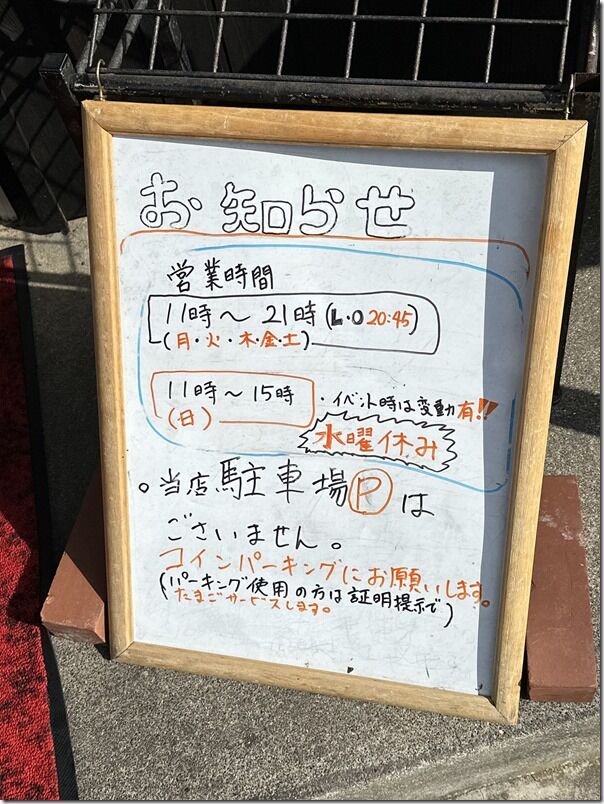 お知らせ
営業時間
11時〜21時(L・O 20:45)
(月・火・木・金・土)
11時〜15時
(日)
・イベント時は変動有!!
水曜休み
。当店駐車場Ⓟは
ございません。
コインパーキングにお願いします。
(パーキング使用の方は証明提示で
たまごサービスします。)